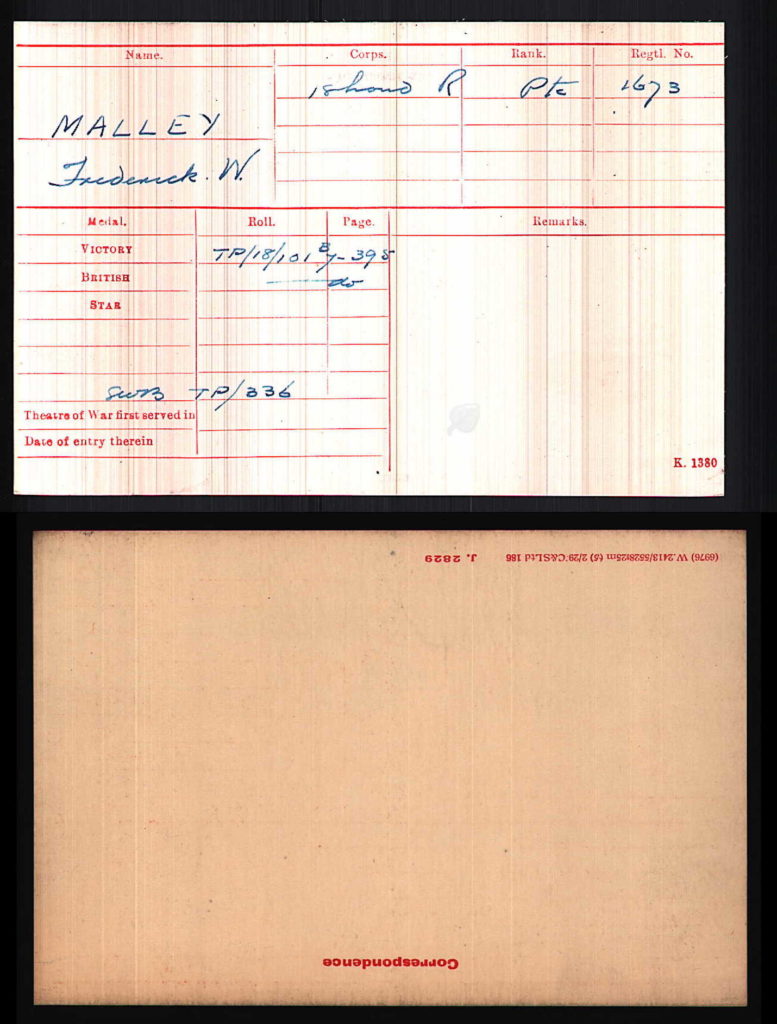 Name. Corps. Rank. Regtl. No.
18 Lond R Pte 1673
MALLEY
Frederick. W.
Medal. Roll. Page. Remarks.
VICTORY TP/18/101 B7-395
BRITISH do
STAR
SWB TP/336
Theatre of War first served in
Date of entry therein
K. 1380
(6976) W.2413/55281r25m (5) 2/29.C&SLtd 186 J. 2829
Correspondence